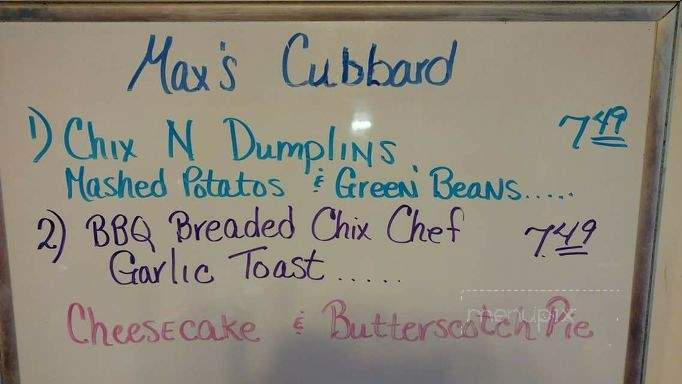 Max's Cubbard
1) Chix N Dumplins 7 49
Mashed Potatos & Green Beans.....
2) BBQ Breaded Chix Chef 7.49
Garlic Toast.....
Cheesecake & Butterscotch Pie
menupix